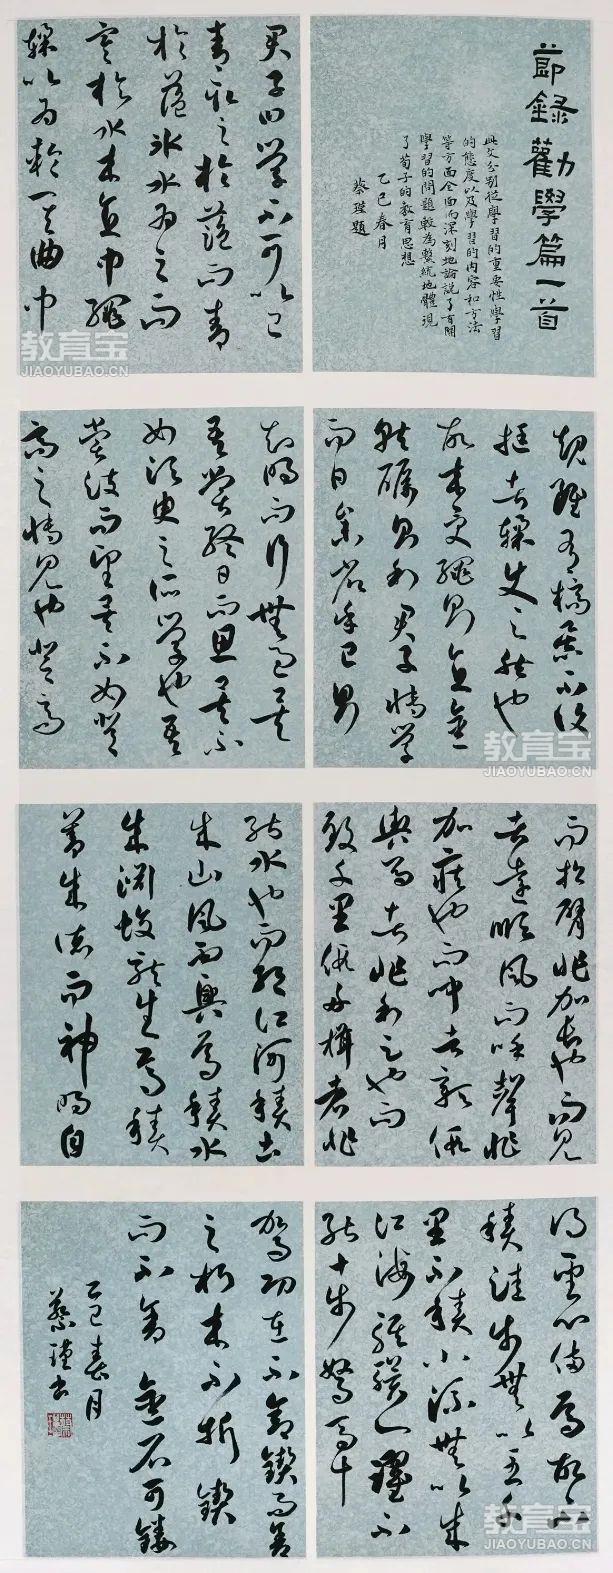 節錄勸學篇一首
此文分別從學習的重要性學習
的態度以及學習的内容和方法
等方面全面而深刻地論說了有關
學習的問題較為繫統地體現
了荀子的教育思想
乙巳春月
蔡瑾題
君子曰學不可以已
青取之於藍而青
於藍冰水為之而
寒於水木直中繩
輮以為輪其曲中
教育宝
JIAOYUBAO.CN
規雖有槁暴不復
挺者輮使之然也
故木受繩則直金
就礪則利君子博學
而日參省乎己則
教育宝
JIAOYUBAO.CN
知明而行無過矣
吾嘗終日而思矣不
如須臾之所學也吾
嘗跂而望矣不如登
高之博見也登高
而招臂非加長也而見
者遠順風而呼聲非
加疾也而聞者彰假
輿馬者非利足也而
致千里假舟楫者非
能水也而絕江河積土
成山風雨興焉積水
成淵蛟龍生焉積
善成德而神明自
得聖心備焉故不
積跬步無以至千
里不積小流無以成
江海騏驥一躍不
能十步駑馬十
教育宝
JIAOYUBAO.CN
駕功在不舍鍥而舍
之朽木不折鍥
而不舍金石可鏤
乙巳春月
蔡瑾書